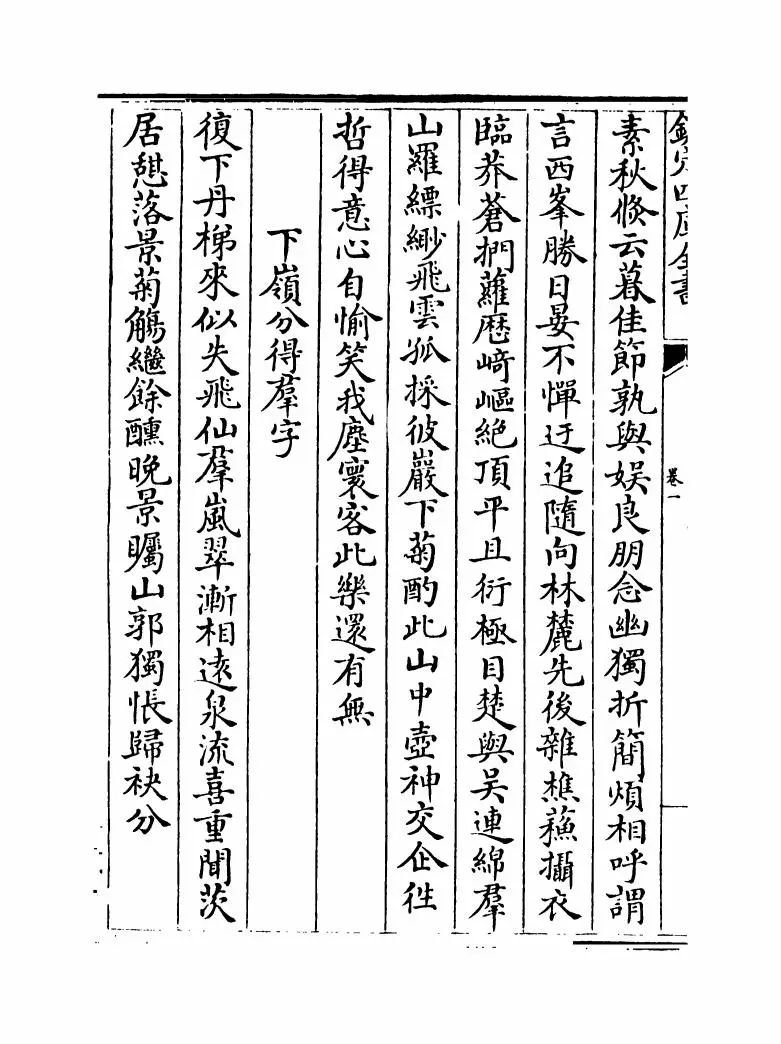 欽定四庫全書
卷一
素秋倐云暮佳節孰與娱良朋念幽獨折簡煩相呼謂
言西峯勝日晏不憚迂追隨向林麓先後雜樵蘓攝衣
臨莽蒼捫蘿歴﨑嶇絶頂平且衍極目楚與吴連綿羣
山羅縹緲飛雲孤採彼巖下菊酌此山中壺神交企徃
哲得意心自愉笑我塵寰客此樂還有無
下嶺分得羣字
復下丹梯來似失飛仙羣嵐翠漸相逺泉流喜重聞茨
居憩落景菊觴繼餘醺晩景矚山郭獨悵歸袂分